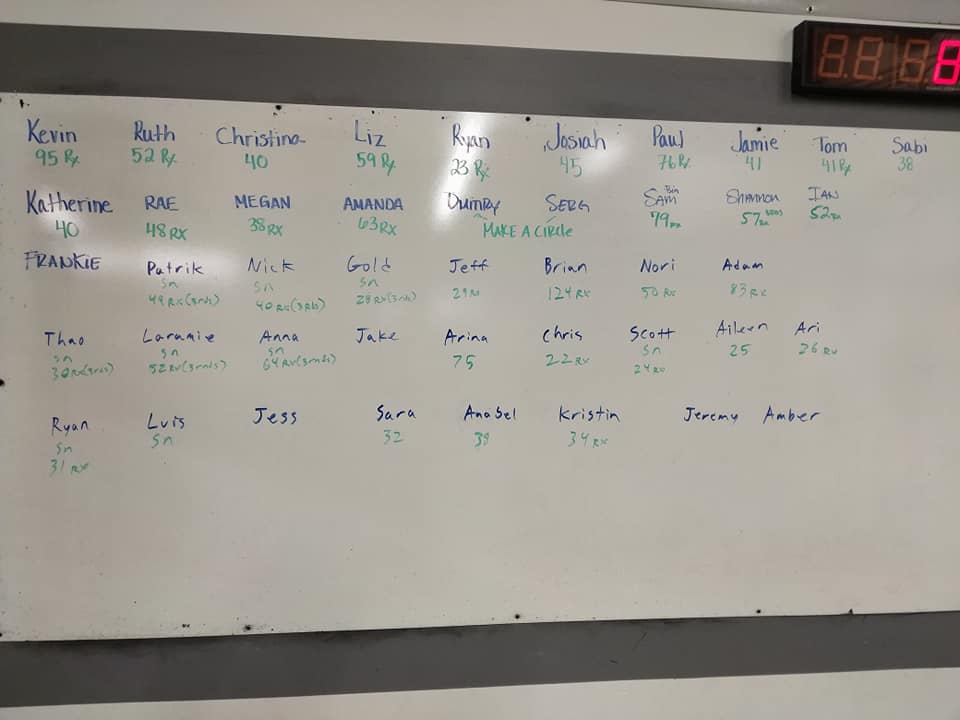 Kevin Ruth Christina Liz Ryan Josiah Paul Jamie Tom Sabi
95 Rx 52 Rx 40 59 Rx 23 Rx 45 76 Rx 41 41 Rx 38
Katherine RAE MEGAN AMANDA DUMRY SERG SAM Shannon IAN
40 48 RX 38 RX 63 RX MAKE A CIRCLE 79 RX 57 52 RX
FRANKIE Patrik Nick Gold Jeff Brian Nori Adam
Sn Sn Sn
49 RX (3rds) 40 RX (3Rds) 28 RX (3rds) 29 RX 124 RX 50 RX 83 RX
Thao Laramie Anna Jake Arina Chris Scott Aileen Ari
Sn Sn Sn 75 22 RX Sn 25 26 RX
30 RX (3rds) 52 RX (3rnds) 64 RX (3rnds) 24 RX
Ryan Luis Jess Sara Anabel Kristin Jeremy Amber
Sn Sn 32 39 34 RX
31 RX